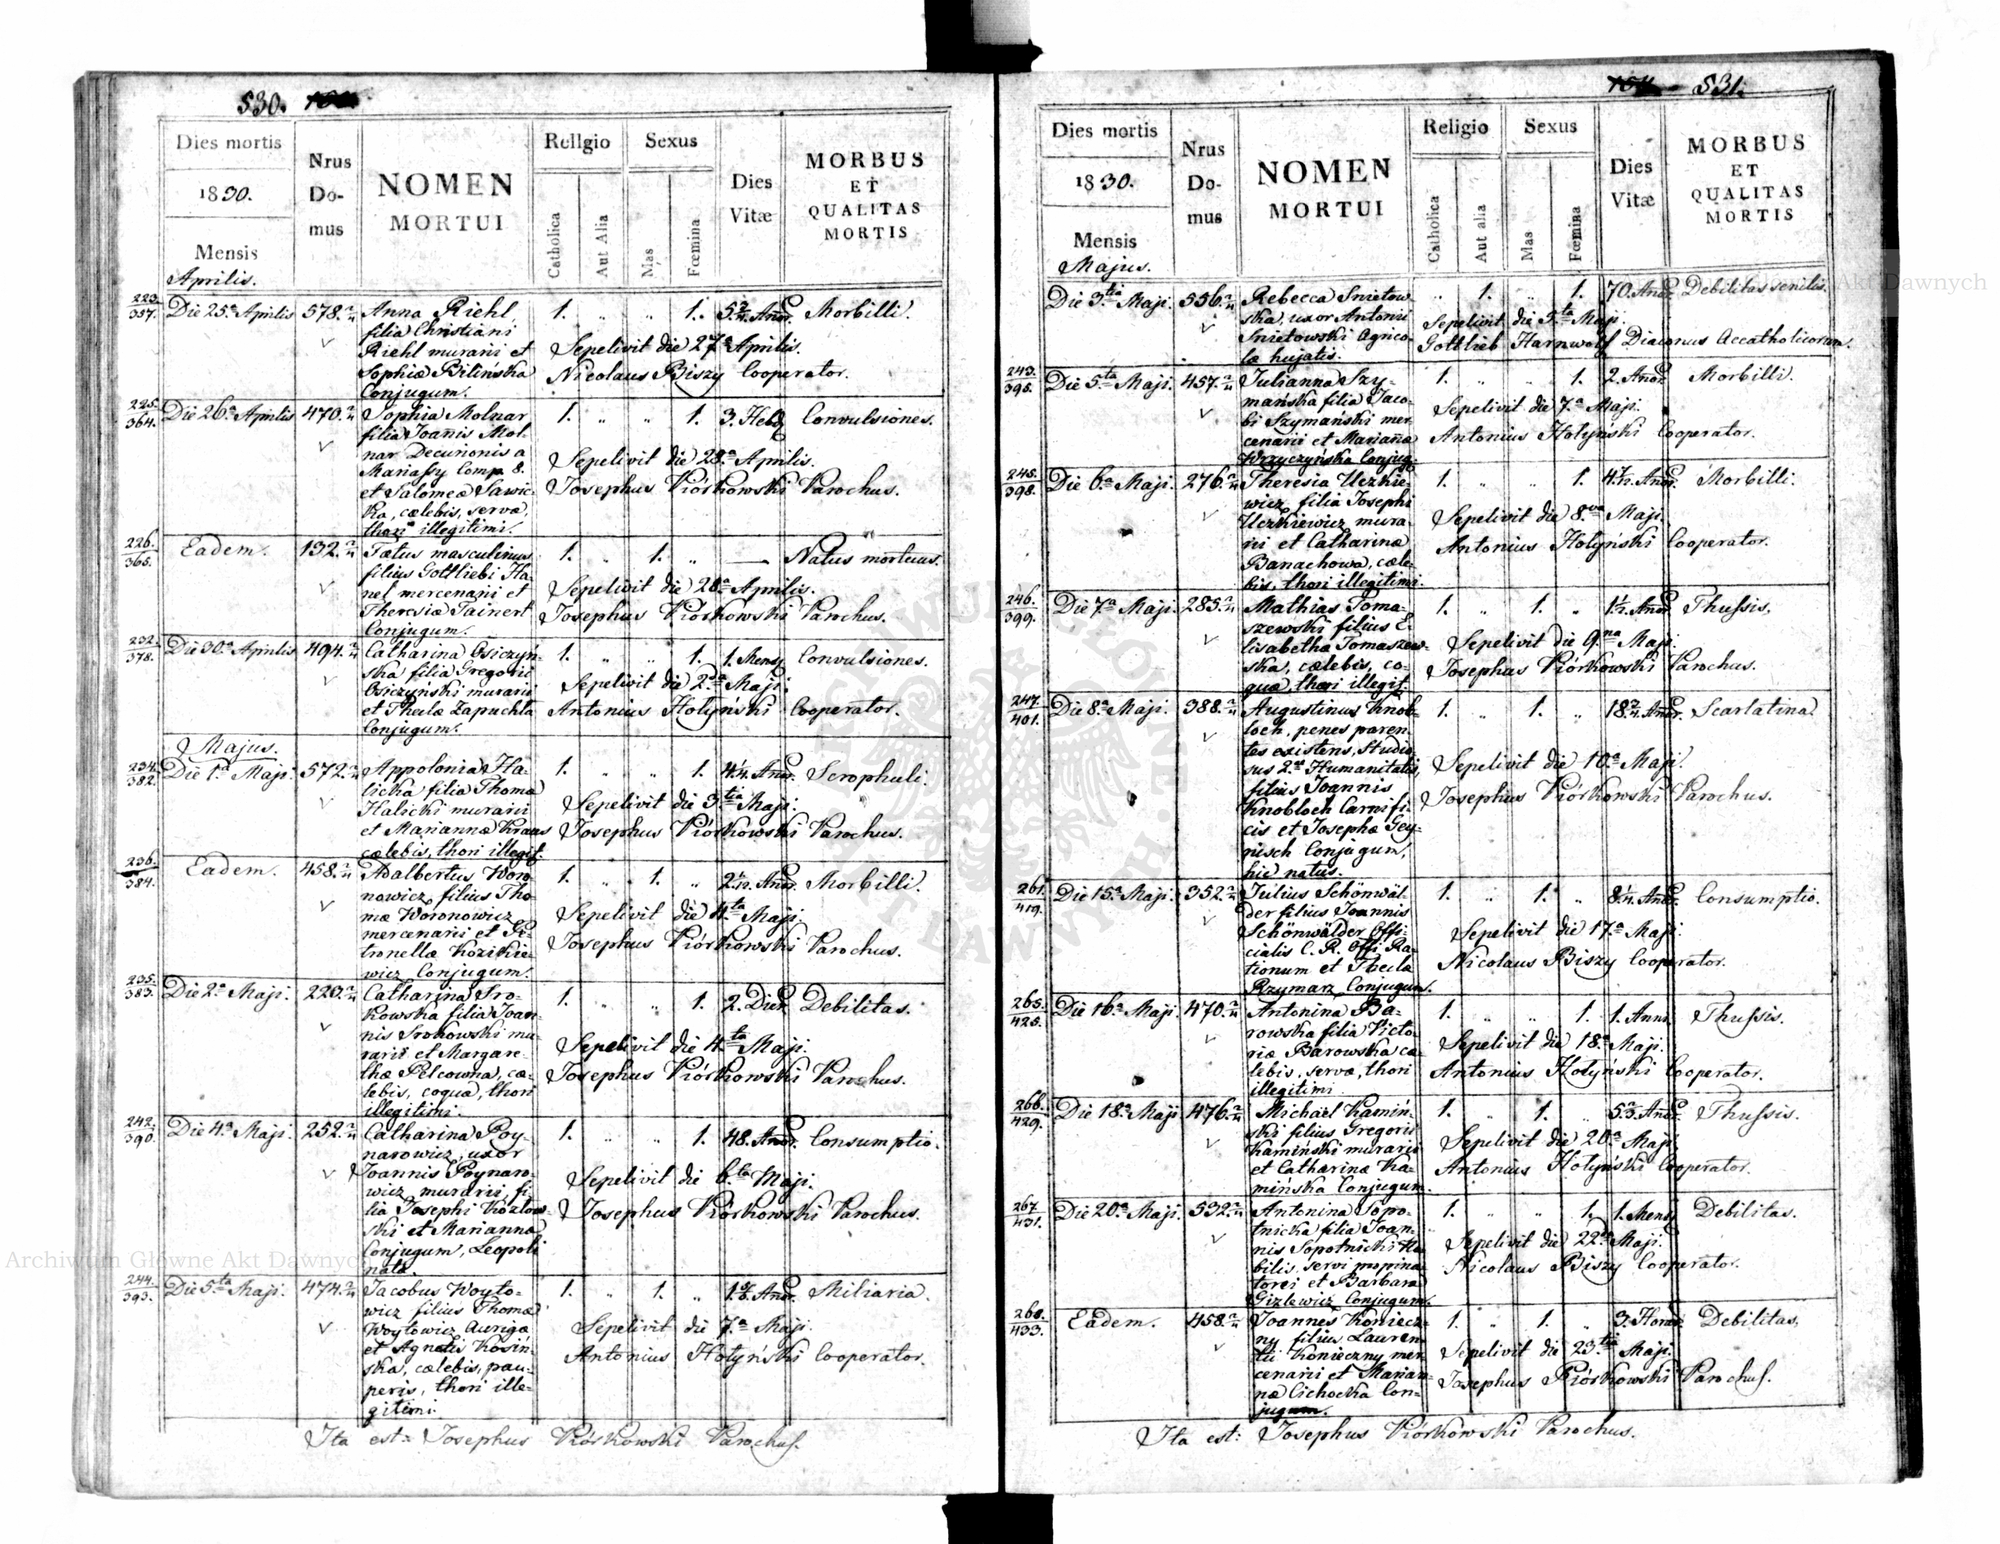 530.
Dies mortis
1830.
Mensis
Aprilis.
Nrus
Do-
mus
NOMEN
MORTUI
Religio
Catholica
Aut Alia
Sexus
Mas
Fœmina
Dies
Vitæ
MORBUS
ET
QUALITAS
MORTIS
223.
357.
Die 25ª Aprilis 578. Anna Riehl 1. „ „ 1. Morbilli.
filia Christiani
Riehl murarii et
Sophiæ Bilinska
Conjugum.
Sepelivit die 27ª Aprilis.
Nicolaus Biszy Cooperator.
225.
364.
Die 26ª Aprilis 470. Sophia Molnar 1. „ „ 1. 3. Hebd Convulsiones.
filia Joanis Mol-
nar Decurionis a
Mariassy Comp. 8.
et Salomeæ Sawic-
ka, cælebis, servæ,
thori illegitimi.
Sepelivit die 28.ª Aprilis.
Josephus Piórkowski Parochus.
226.
365.
Eadem. 132. Fætus masculinus 1. „ 1. „ — Natus mortuus.
filius Gottliebi Ha-
nel mercenarii et
Theresiæ Tainert
Conjugum.
Sepelivit die 28ª Aprilis.
Josephus Piórkowski Parochus.
232.
378.
Die 30ª Aprilis 494. Catharina Osiczyń- 1. „ „ 1. 1. Mens Convulsiones.
ska filia Gregorii
Osiczyński murarii
et Theclæ Zapuchla
Conjugum.
Sepelivit die 2da Maji.
Antonius Hołyński Cooperator.
Majus.
234.
382.
Die 1ª Maji. 572. Appolonia Ha- 1. „ „ 1. Scrophuli.
licka filia Thoma
Halicki murarii
et Mariannæ Kraus
cælebis, thori illegit.
Sepelivit die 3tia Maji.
Josephus Piórkowski Parochus.
236.
384.
Eadem. 458. Adalbertus Woro- 1. „ 1. „ Morbilli.
nowicz filius Tho-
mæ Woronowicz
mercenarii et Pe-
tronellæ Kozikie-
wicz Conjugum.
Sepelivit die 4ta Maji.
Josephus Piórkowski Parochus.
235.
383.
Die 2ª Maji. 220. Catharina Sro- 1. „ „ 1. 2. Dier Debilitas.
kowska filia Joan-
nis Srokowski mu-
rarii et Margare-
thæ Pelcowna, cæ-
lebis, coqua, thori
illegitimi.
Sepelivit die 4ta Maji.
Josephus Piórkowski Parochus.
242.
390.
Die 4ª Maji. 252. Catharina Poy- 1. „ „ 1. 48. Anor. Consumptio.
narowicz, uxor
Joannis Poynaro-
wicz murarii, fi-
lia Josephi Kozłow-
ski et Marianna
Conjugum, Leopoli
nata.
Sepelivit die 6ta Maji.
Josephus Piórkowski Parochus.
244.
393.
Die 5ta Maji. 474. Jacobus Woyto- 1. „ 1. „ Miliaria.
wicz filius Thomæ
Woytowicz Aurigæ
et Agnetis Kosin-
ska, cælebis, pau-
peris, thori ille-
gitimi.
Sepelivit die 7.ª Maji.
Antonius Hołyński Cooperator.
Ita est: Josephus Piórkowski Parochus.
531.
Dies mortis
1830.
Mensis
Majus.
Nrus
Do-
mus
NOMEN
MORTUI
Religio
Catholica
Aut alia
Sexus
Mas
Fœmina
Dies
Vitæ
MORBUS
ET
QUALITAS
MORTIS
Die 3tia Maji. 556. Rebecca Snietow- „ 1. „ 1. 70. Anor. Debilitas senilis.
ska, uxor Antonii
Snietowski Agrico-
læ hujatis.
Sepelivit die 5ta Maji.
Gottlieb Harnwolf Diaconus Accatholicorum.
243.
395.
Die 5ta Maji. 457. Julianna Szy- 1. „ „ 1. 2. Anor. Morbilli.
mańska filia Jaco-
bi Szymański mer-
cenarii et Mariannæ
Wrzyczyńska Conjug.
Sepelivit die 7.ª Maji.
Antonius Hołyński Cooperator.
245.
398.
Die 6.ª Maji. 276. Theresia Uczkie- 1. „ „ 1. Morbilli.
wicz, filia Josephi
Uczkiewicz mura-
rii et Catharinæ
Banachowa, cæle-
bis, thori illegitimi.
Sepelivit die 8.va Maji.
Antonius Hołyński Cooperator.
246.
399.
Die 7ª Maji. 285. Mathias Toma- 1. „ 1. „ Thussis.
szewski filius E-
lisabetha Tomaszew-
ska, cælebis, co-
qua, thori illegit.
Sepelivit die 9na Maji.
Josephus Piórkowski Parochus.
247.
401.
Die 8.ª Maji. 388. Augustinus Knob- 1. „ 1. „ Scarlatina.
loch, penes paren-
tes existens, Studio-
sus 2.æ Humanitatis,
filius Joannis
Knobloch Carnifi-
cis et Josepha Gey-
nisch Conjugum,
hic natus.
Sepelivit die 10.ª Maji.
Josephus Piórkowski Parochus.
261.
419.
Die 15ª Maji. 352. Julius Schönwäl- 1. „ 1. „ Consumptio.
der filius Joannis
Schönwälder Offi-
cialis C. R. Offi Ra-
tionum et Theclæ
Rzymarz Conjugum.
Sepelivit die 17.ª Maji.
Nicolaus Biszy Cooperator.
265.
425.
Die 16ª Maji. 470. Antonina Ba- 1. „ „ 1. 1. Anni Thussis.
rowska filia Victo-
riæ Barowska cæ-
lebis, servæ, thori
illegitimi.
Sepelivit die 18.ª Maji.
Antonius Hołyński Cooperator.
266.
429.
Die 18ª Maji 476. Michael Kamiń- 1. „ 1. „ Thussis.
ski filius Gregorii
Kamiński murarii
et Catharinæ Ka-
mińska Conjugum.
Sepelivit die 20.ª Maji.
Antonius Hołyński Cooperator.
267.
431.
Die 20.ª Maji. 532. Antonina Sopo- 1. „ „ 1. 1. Mens Debilitas.
tnicka filia Joan-
nis Sopotnicki No-
bilis, servi propina-
toris et Barbara
Gizlewicz Conjugum.
Sepelivit die 22da Maji.
Nicolaus Biszy Cooperator.
268.
433.
Eadem. 458. Joannes Koniecz- 1. „ 1. „ 3. Horar. Debilitas.
ny filius Lauren-
tii Konieczny mer-
cenarii et Marian-
næ Cichocka Con-
jugum.
Sepelivit die 23tia Maji.
Josephus Piórkowski Parochus.
Ita est: Josephus Piórkowski Parochus.
Archiwum Główne Akt Dawnych